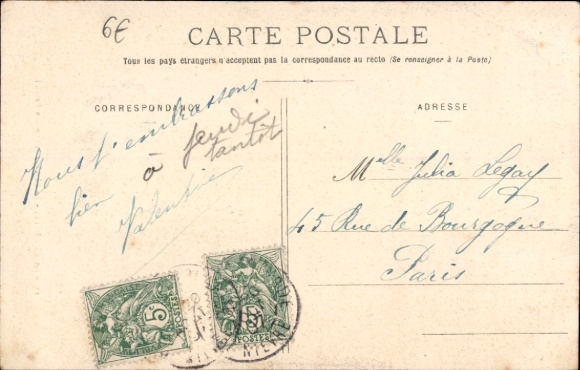 6€
CARTE POSTALE
Tous les pays étrangers n'acceptent pas la correspondance au recto (Se renseigner à la Poste)
CORRESPONDANCE
Nous t'embrassons
bien
à jeudi
tantôt
Valentine
ADRESSE
Melle Julia Legay
45 Rue de Bourgogne
Paris
5c
POSTES